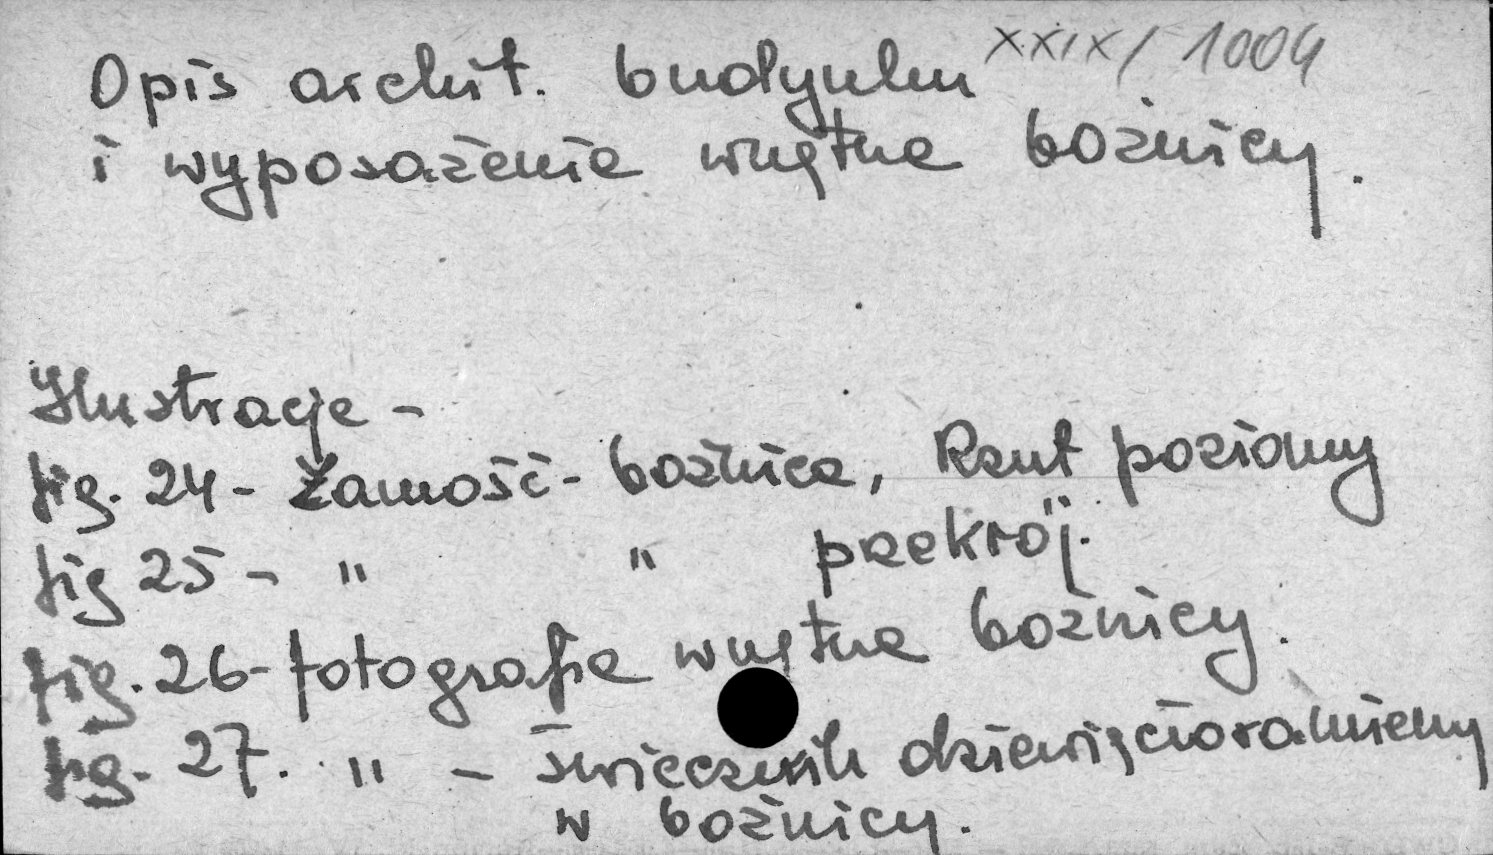 XXIX/1004
Opis archit. budynku
i wyposażenie wnętrze bożnicy.
Ilustracje -
fig. 24 - Zamość - bożnica, Rzut poziomy
fig 25 - " " przekrój.
fig. 26 - fotografie wnętrze bożnicy.
fig. 27. " - świecznik dziewięcioramienny
w bożnicy.